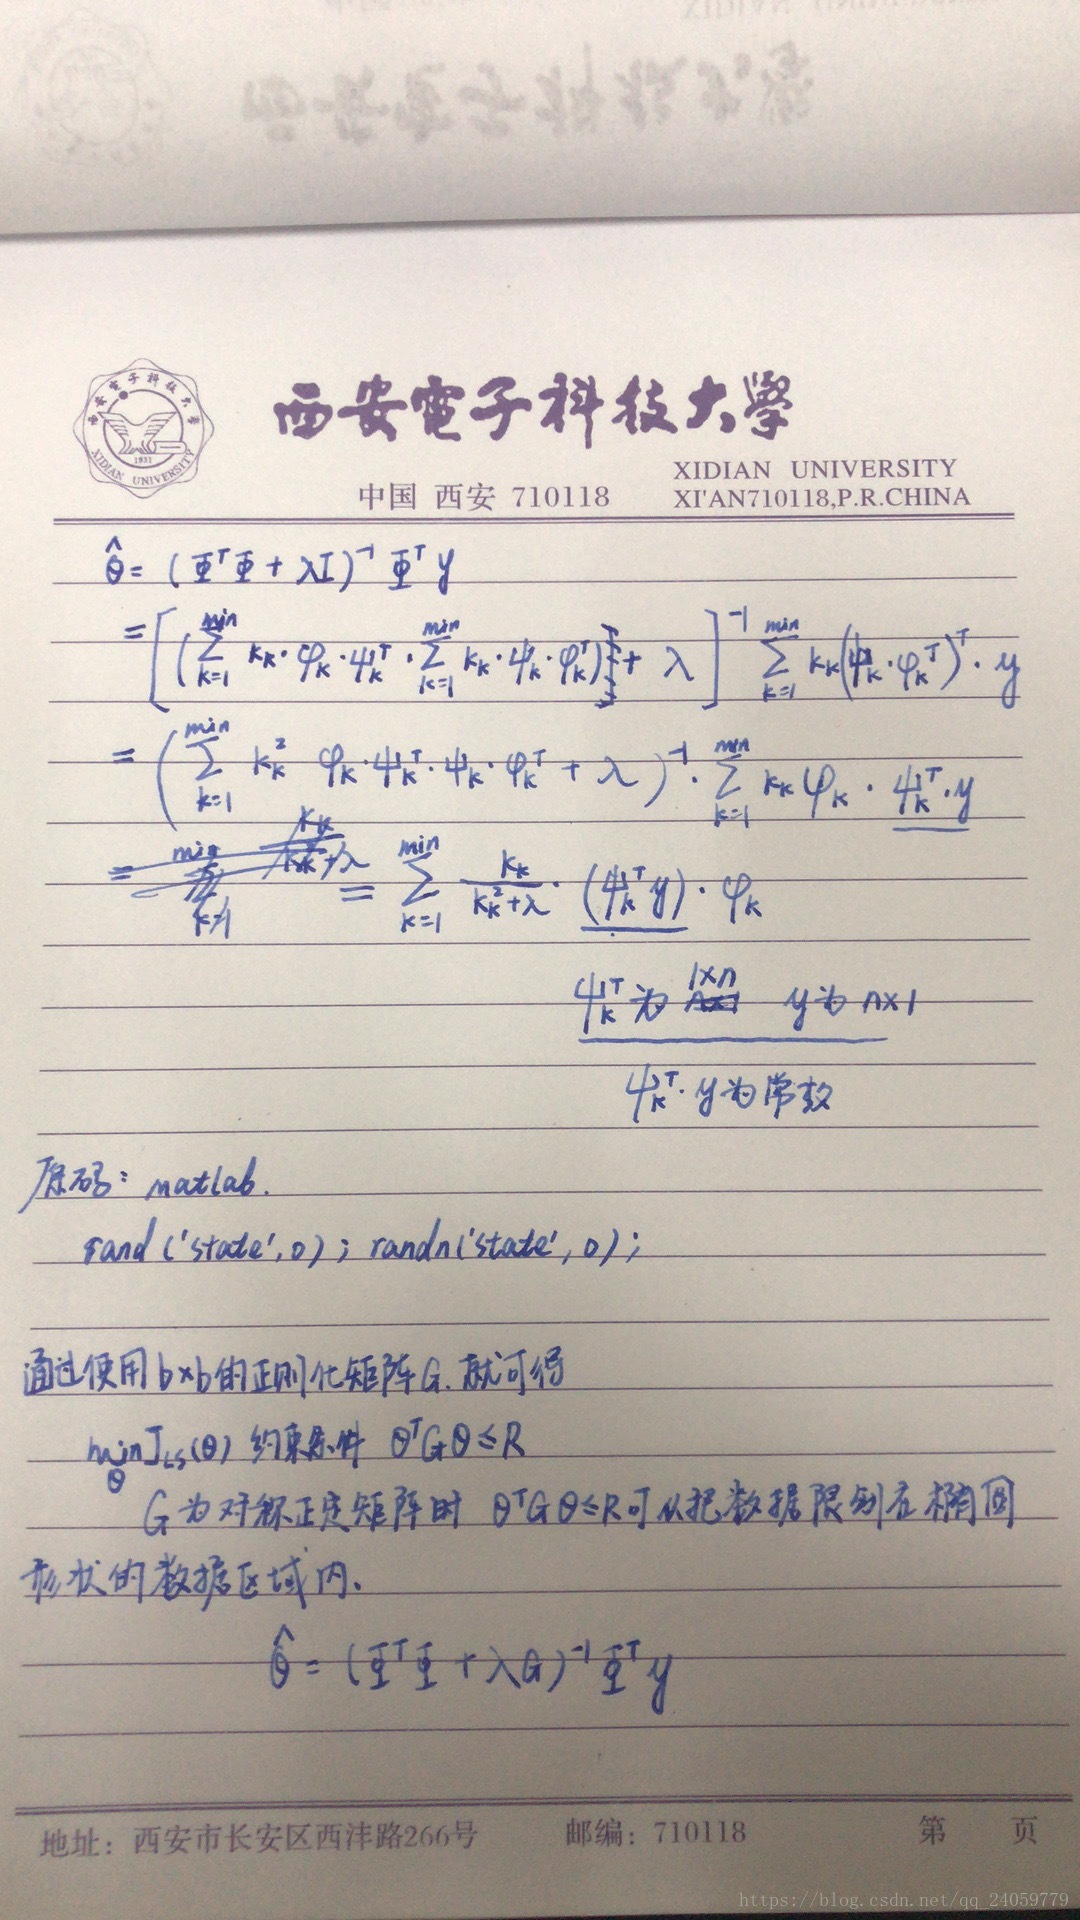 西安電子科技大學
XIDIAN UNIVERSITY
1931
西安電子科技大學
XIDIAN UNIVERSITY
中国 西安 710118
XI'AN710118,P.R.CHINA
θ̂ = (Φ^T Φ + λI)^{-1} Φ^T y
= [(∑_{k=1}^{min} κ_k·φ_k·ψ_k^T · ∑_{k=1}^{min} κ_k·ψ_k·φ_k^T) + λ]^{-1} ∑_{k=1}^{min} κ_k(ψ_k·φ_k^T)^T·y
= (∑_{k=1}^{min} κ_k^2 φ_k·ψ_k^T·ψ_k·φ_k^T + λ)^{-1} · ∑_{k=1}^{min} κ_k φ_k · ψ_k^T·y
= ∑_{k=1}^{min} κ_k/(κ_k^2+λ) · (ψ_k^T y) · φ_k
ψ_k^T 为 1×n y为 n×1
ψ_k^T·y为常数
原码: matlab.
rand('state',0); randn('state',0);
通过使用b×b的正则化矩阵G.就可得
min_θ J_LS(θ) 约束条件 θ^T G θ ≤ R
G为对称正定矩阵时 θ^T G θ ≤ R可以把数据限制在椭圆
形状的数据区域内.
θ̂ = (Φ^T Φ + λG)^{-1} Φ^T y
地址: 西安市长安区西沣路266号 邮编: 710118 第 页
https://blog.csdn.net/qq_24059779